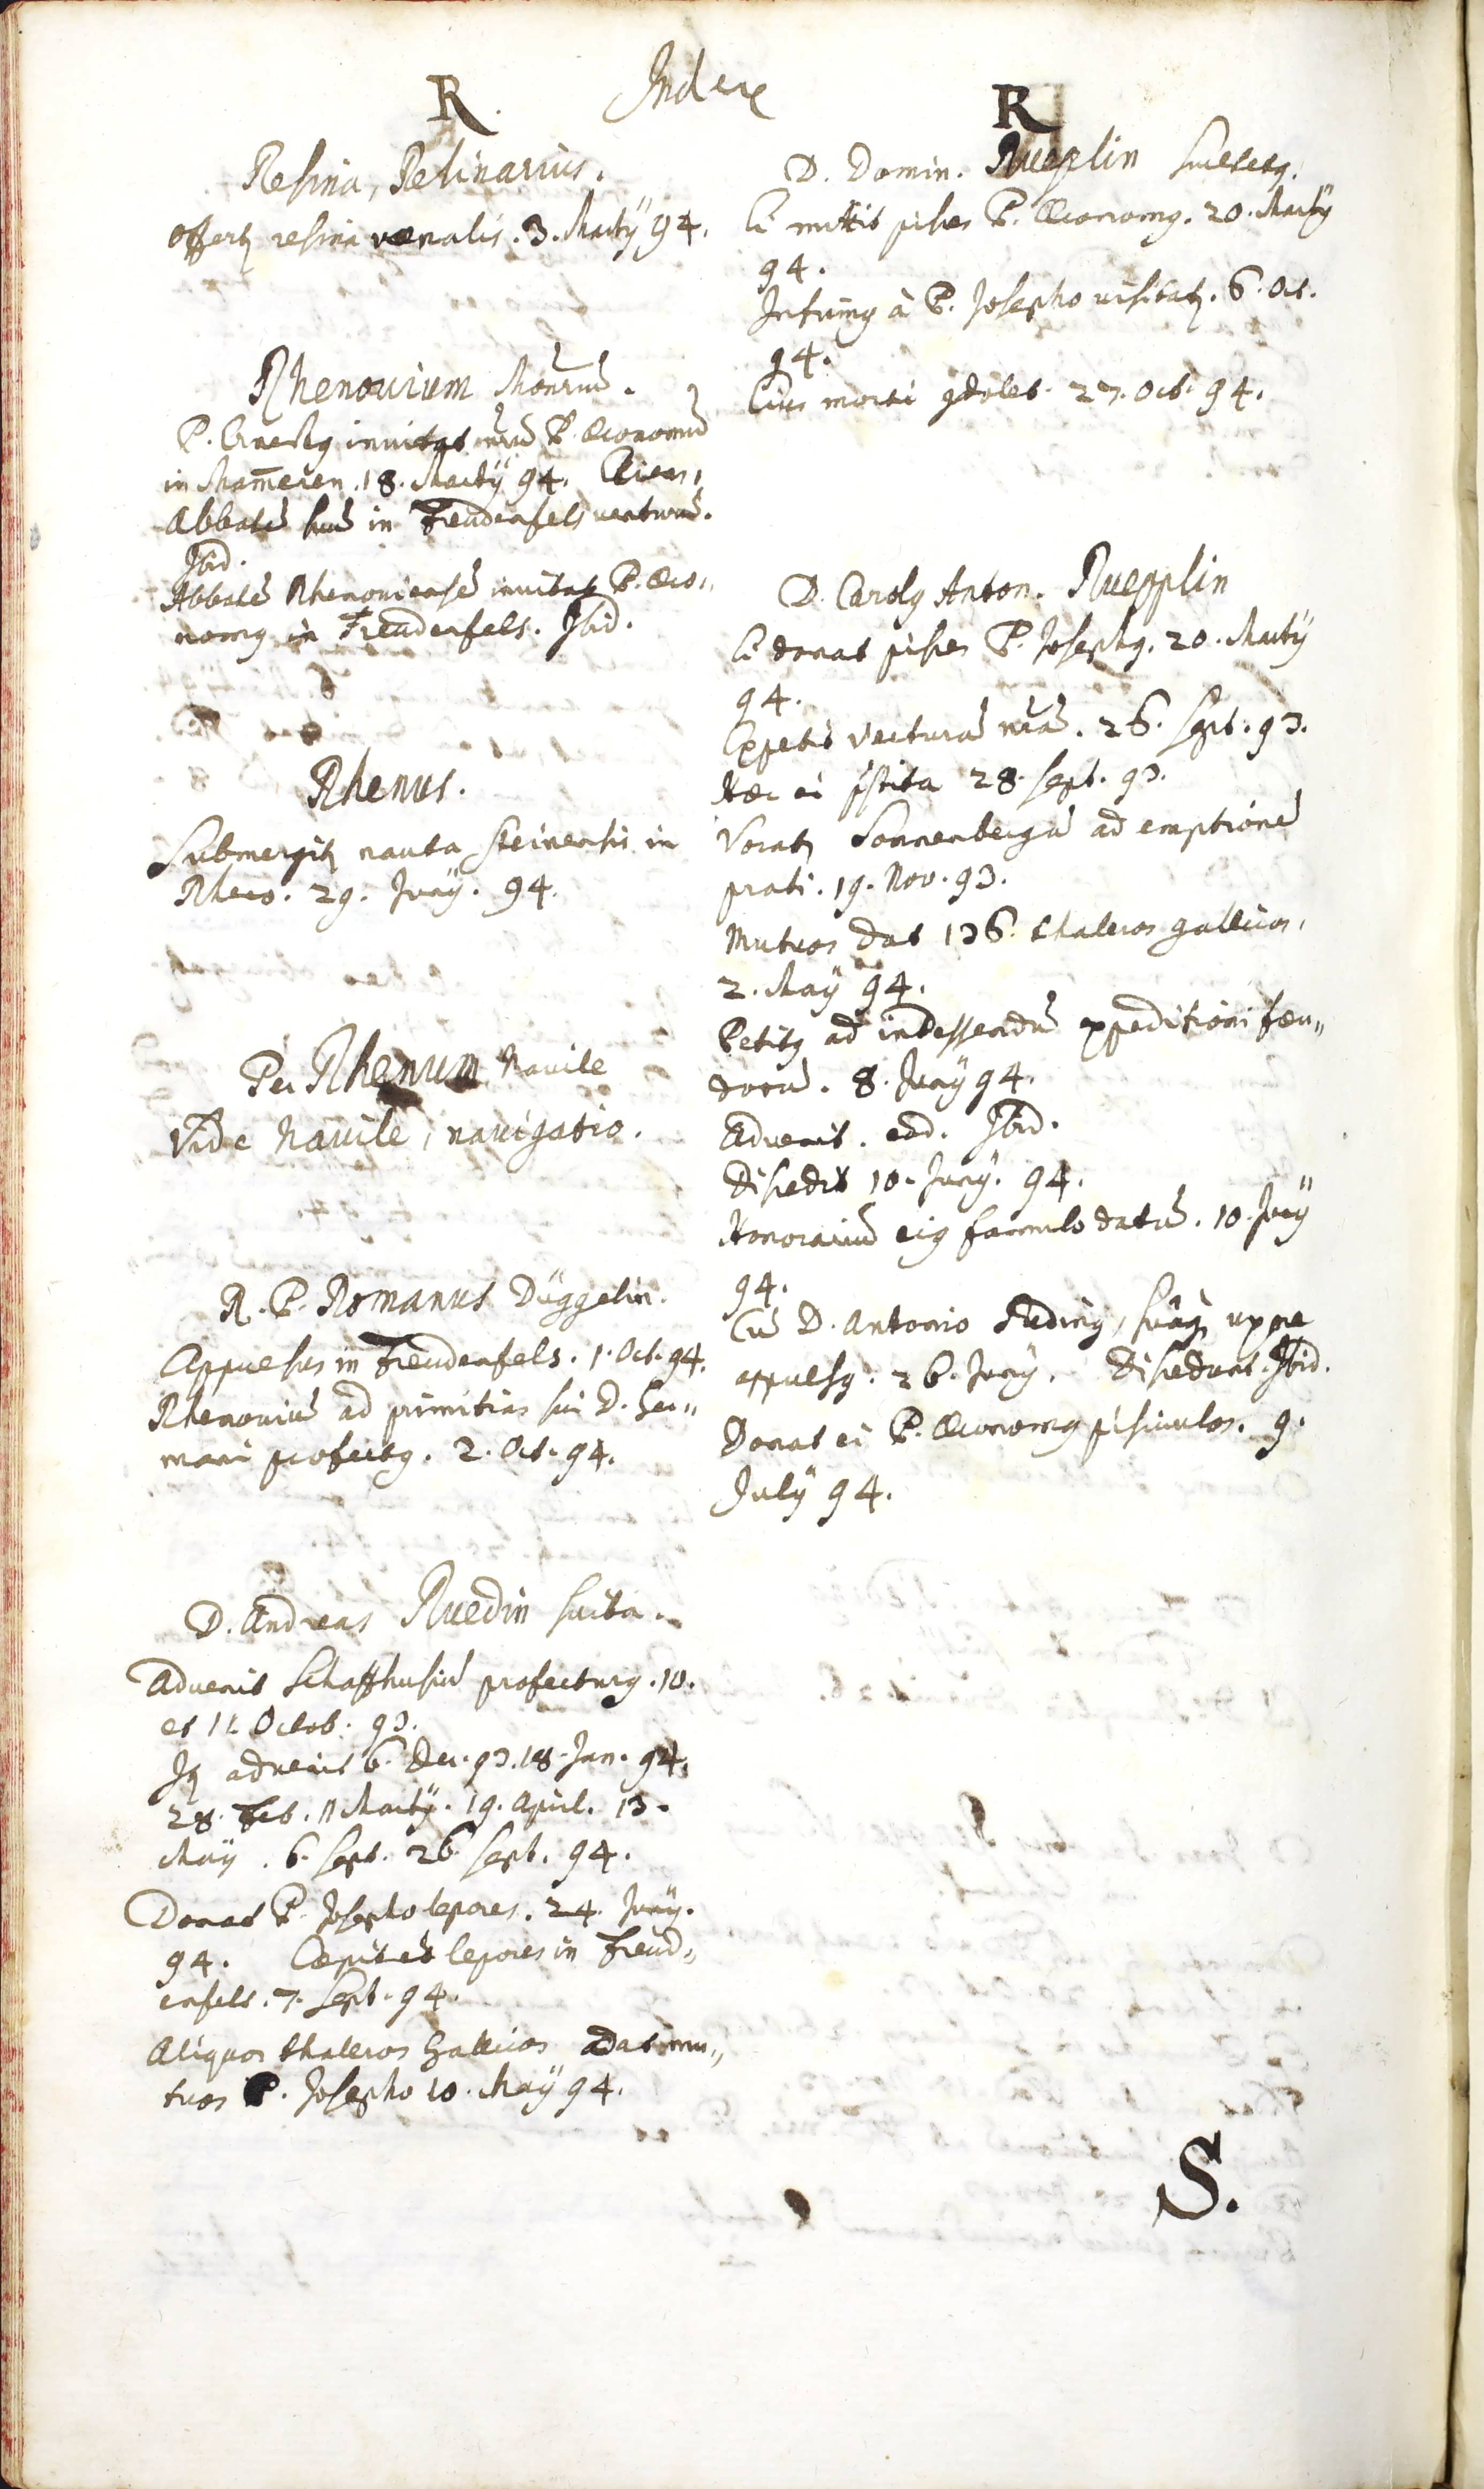 R. Index R
Resina, Resinarius.
offert' resina vaenalis. 3. Martÿ 94.
Rhenovium Monrũ.
P. Ernestg inuitat nrũ P. Oeconomũ
in Mam̃eren. 18. Martÿ 94.
Abbatẽ suũ in Freudenfels venturũ.
Ibid.
Abbatẽ Rhenoviensẽ inuitat P. Oeco„
nomg in Freudenfels. Ibid.
Rhenus.
Submergit' nauta Steinensis in
Rheno. 29. Junÿ. 94.
Per Rhenum Nauile
Vide Nauile, navigatio.
R. P. Romanus Düggelin.
Appulsus in Freudenfels. 1. Oct. 94.
Rhenoviũ ad primitias sui D. Ger„
mani profectg. 2. Oct. 94.
D. Andreas Ruedin Suita.
Aduenit Schaffhusiũ profecturg. 10.
et 11. Octob: 93.
It' aduenit 6. Dec. 93. 18. Jan. 94.
28. Feb. 11 Martÿ. 19. April. 13.
Maÿ. 6. Sept. 26 Sept. 94.
Donat P. Josepho lepores. 24. Junÿ.
94. Coepit et lepores in Freud„
enfels. 7. Sept. 94.
Aliquos thaleros Gallicos dat mu„
tuos P. Josepho 10. Maÿ 94.
D. Domin. Rueplin
Ei mittit pisces P. Oeconomg. 20. Martÿ
94.
Infirmg à P. Josepho visitat'. 6. Oct.
94.
Eius morti 9dolet. 27. Oct. 94.
D. Carolg Anton. Ruepplin
Ei donat pisces P. Josephg. 20. Martÿ
94.
Expetit Vecturã nrã. 26. Sept. 93.
Haec ei p̃stita 28. Sept. 93.
Vocat' Sonnenbergã ad emptionẽ
prati. 19. Nov. 93.
Mutuos dat 136. thaleros gallicos.
2. Maÿ 94.
Petitg ad indessendũ expeditioni foeu„
dorũ. 8. Junÿ 94.
Aduenit. eod. Ibid.
Discedit 10. Junÿ. 94.
Honorariũ eig famulo datũ. 10. Junÿ
94.
Cũ D. Antonio Ruding, suãq3 uxore
appulsg. 26. Junÿ. Discedunt. Ibid.
Donat ei P. Oeconomg pisciculos. 9.
Julÿ 94.
S.